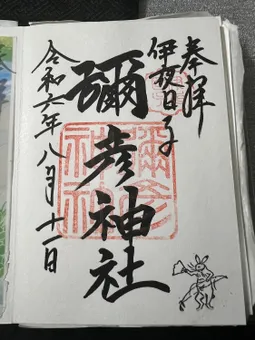 奉拝
伊夜日子
彌彦神社
彌彦
神社
令和六年八月十一日